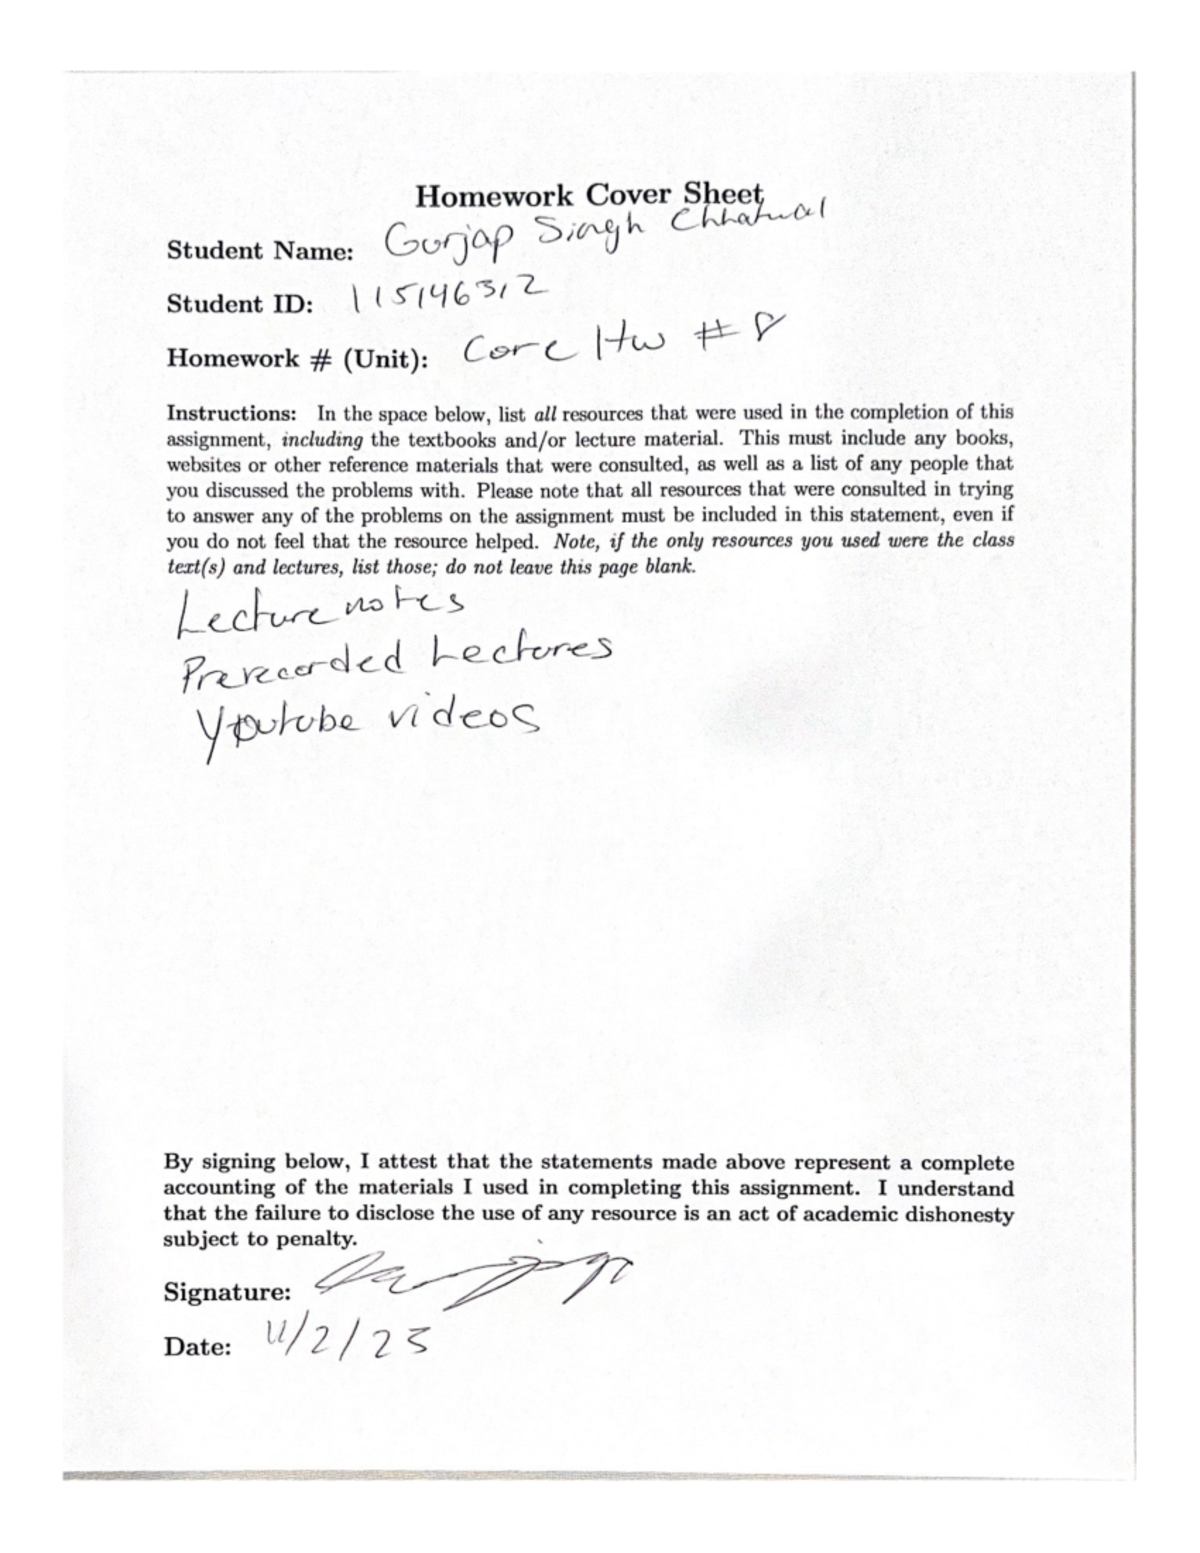 Homework Cover Sheet
Student Name: Gurjap Singh Chhatwal
Student ID: 115146312
Homework # (Unit): Core Hw #8
Instructions: In the space below, list all resources that were used in the completion of this
assignment, including the textbooks and/or lecture material. This must include any books,
websites or other reference materials that were consulted, as well as a list of any people that
you discussed the problems with. Please note that all resources that were consulted in trying
to answer any of the problems on the assignment must be included in this statement, even if
you do not feel that the resource helped. Note, if the only resources you used were the class
text(s) and lectures, list those; do not leave this page blank.
Lecture notes
Prerecorded Lectures
Youtube videos
By signing below, I attest that the statements made above represent a complete
accounting of the materials I used in completing this assignment. I understand
that the failure to disclose the use of any resource is an act of academic dishonesty
subject to penalty.
Signature:
Date: 11/2/23